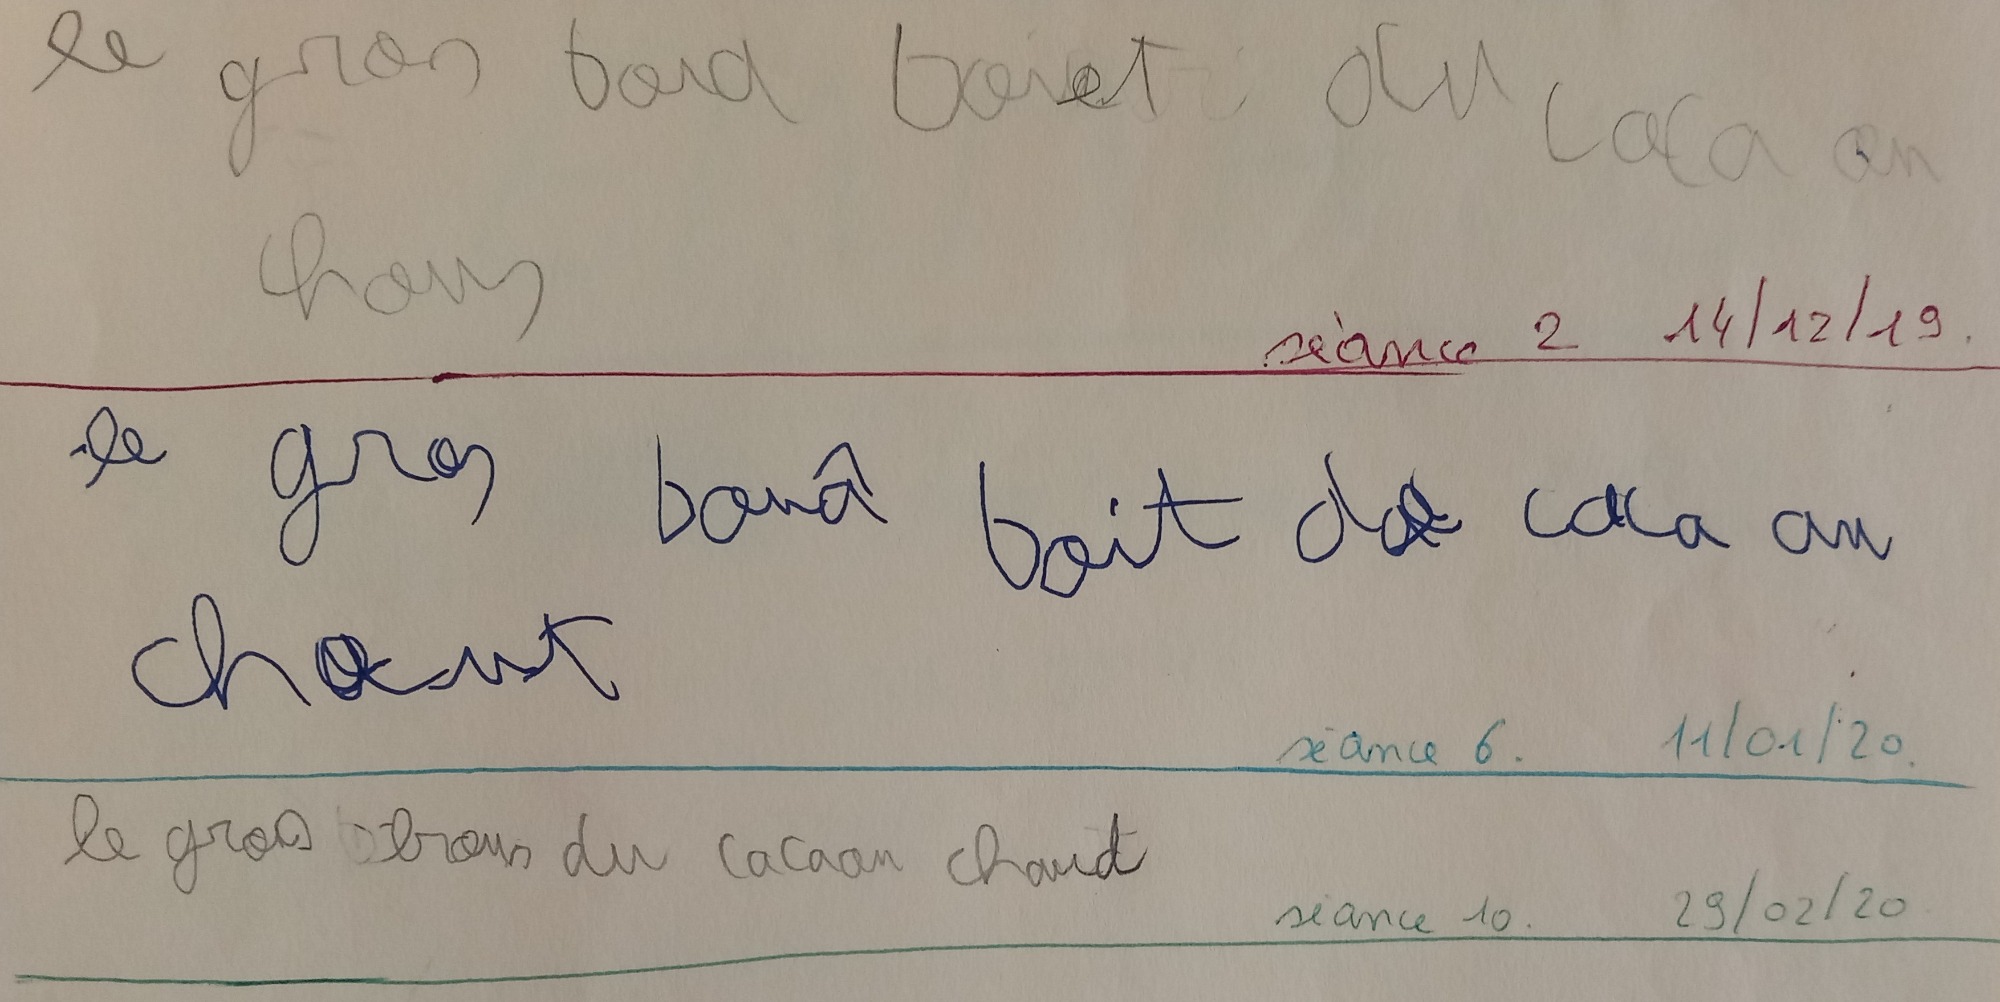 le gros boid boiet du caca au
chous
séance 2 14/12/19.
le gros bouâ boit de caca au
chaut
séance 6. 11/01/20.
le gros brous du cacaau chaud
séance 10. 29/02/20